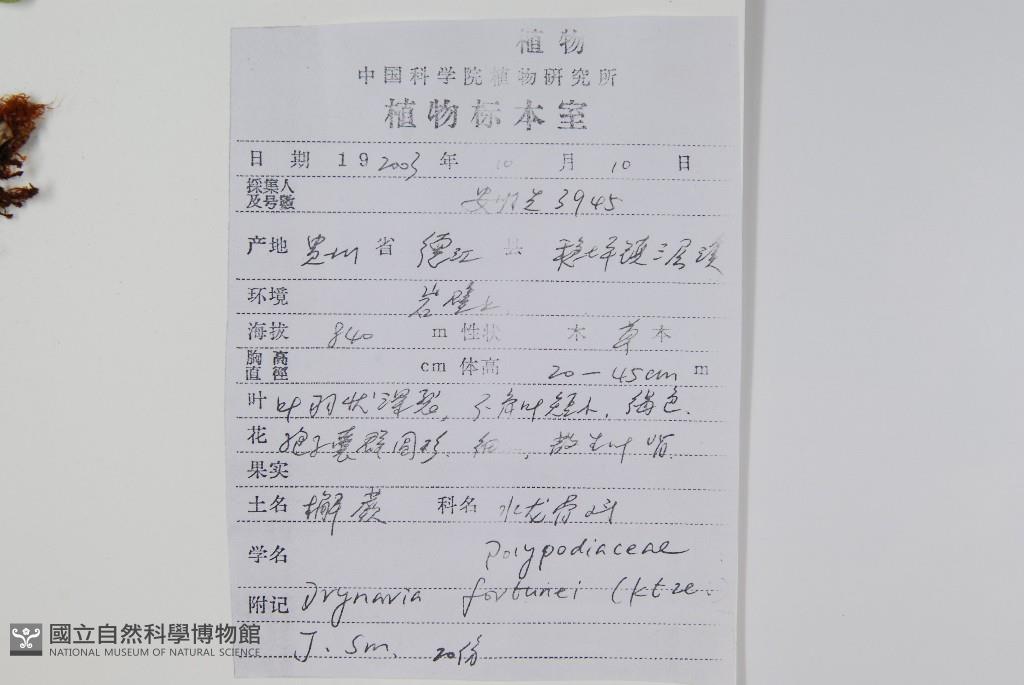 植物
中国科学院植物研究所
植物标本室
日期 19 2003 年 10 月 10 日
採集人
及号数 安明先 3945
产地 贵州 省 德江 县 稳坪镇三层
环境 岩壁上
海拔 840 m 性状 木 草本
胸高
直徑 cm 体高 20-45cm m
叶 叶羽状深裂, 不育叶短小, 褐色.
花 孢子囊群圆形. 细, 散生叶背.
果实
土名 槲蕨 科名 水龙骨科
学名 Polypodiaceae
附记 Drynaria fortunei (ktze.
J. Sm. 20份
國立自然科學博物館
NATIONAL MUSEUM OF NATURAL SCIENCE